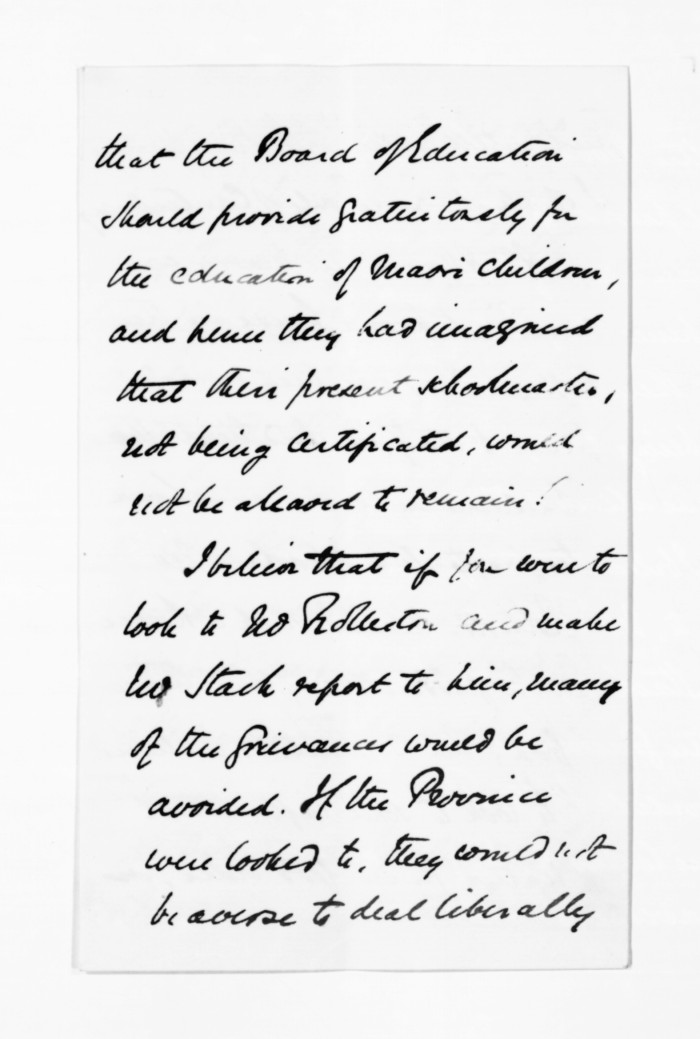 that the Board of Education
should provide gratuitously for
the education of Maori children,
and hence they had imagined
that their present schoolmaster,
not being certificated, would
not be allowed to remain!
I believe that if you were to
look to Mr Rolleston and make
Mr Stack report to him, many
of the grievances would be
avoided. If the Province
were looked to, they would not
be averse to deal liberally